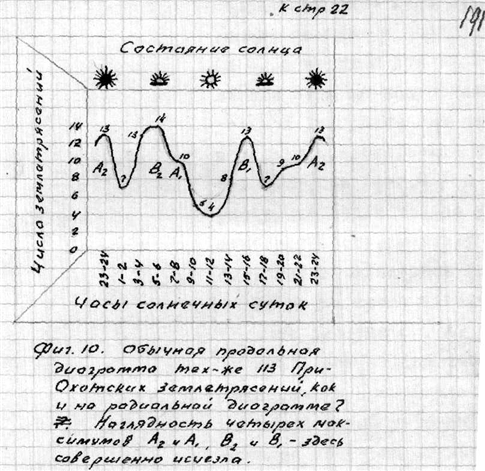 к стр 22
191
Состояние солнца
Число землетрясений
14
12
10
8
6
4
2
0
13
7
13
14
10
5
4
8
13
7
9
10
13
A2
B2
A1
B1
A2
23-24
1-2
3-4
5-6
7-8
9-10
11-12
13-14
15-16
17-18
19-20
21-22
23-24
Часы солнечных суток
Фиг. 10. Обычная продольная
диаграмма тех-же 113 При-
Охотских землетрясений, как
и на радиальной диаграмме?
Наглядность четырех мак-
симумов A2 и A1, B2 и B1 - здесь
совершенно исчезла.